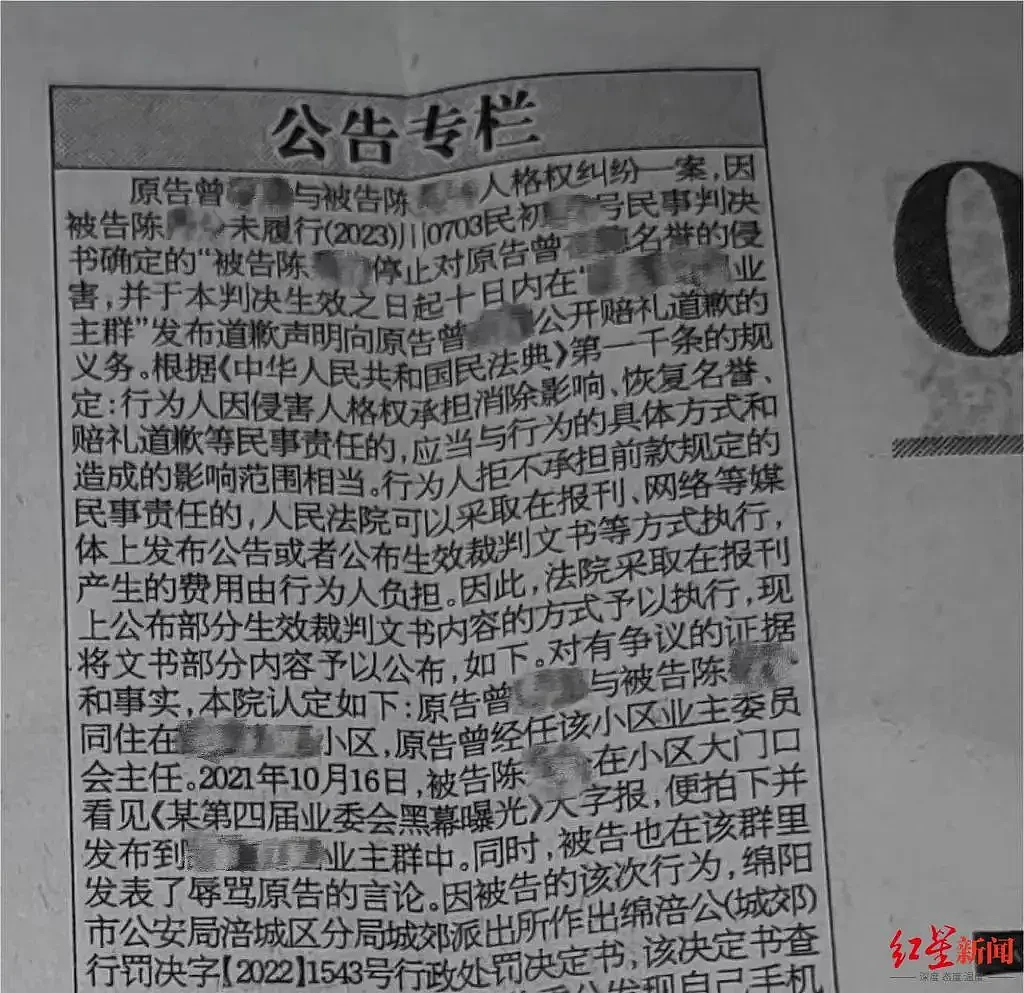 公告专栏
原告曾 与被告陈 人格权纠纷一案,因
被告陈 未履行(2023)川0703民初 号民事判决
书确定的“被告陈 停止对原告曾 名誉的侵
害,并于本判决生效之日起十日内在“ 业
主群”发布道歉声明向原告曾 公开赔礼道歉的
义务。根据《中华人民共和国民法典》第一千条的规
定:行为人因侵害人格权承担消除影响、恢复名誉、
赔礼道歉等民事责任的,应当与行为的具体方式和
造成的影响范围相当。行为人拒不承担前款规定的
民事责任的,人民法院可以采取在报刊、网络等媒
体上发布公告或者公布生效裁判文书等方式执行,
产生的费用由行为人负担。因此,法院采取在报刊
上公布部分生效裁判文书内容的方式予以执行,现
将文书部分内容予以公布,如下。对有争议的证据
和事实,本院认定如下:原告曾 与被告陈
同住在 小区,原告曾经任该小区业主委员
会主任。2021年10月16日,被告陈 在小区大门口
看见《某第四届业委会黑幕曝光》大字报,便拍下并
发布到 业主群中。同时,被告也在该群里
发表了辱骂原告的言论。因被告的该次行为,绵阳
市公安局涪城区分局城郊派出所作出绵涪公(城郊)
行罚决字【2022】1543号行政处罚决定书,该决定书查
发现自己手机
0
红星新闻
深度 态度 温度